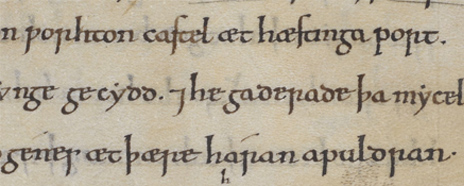 n worhton castel æt hæstinga port.
ynge gecydd. ⁊ he gaderade þa mycel
gener æt þære haran apuldran.